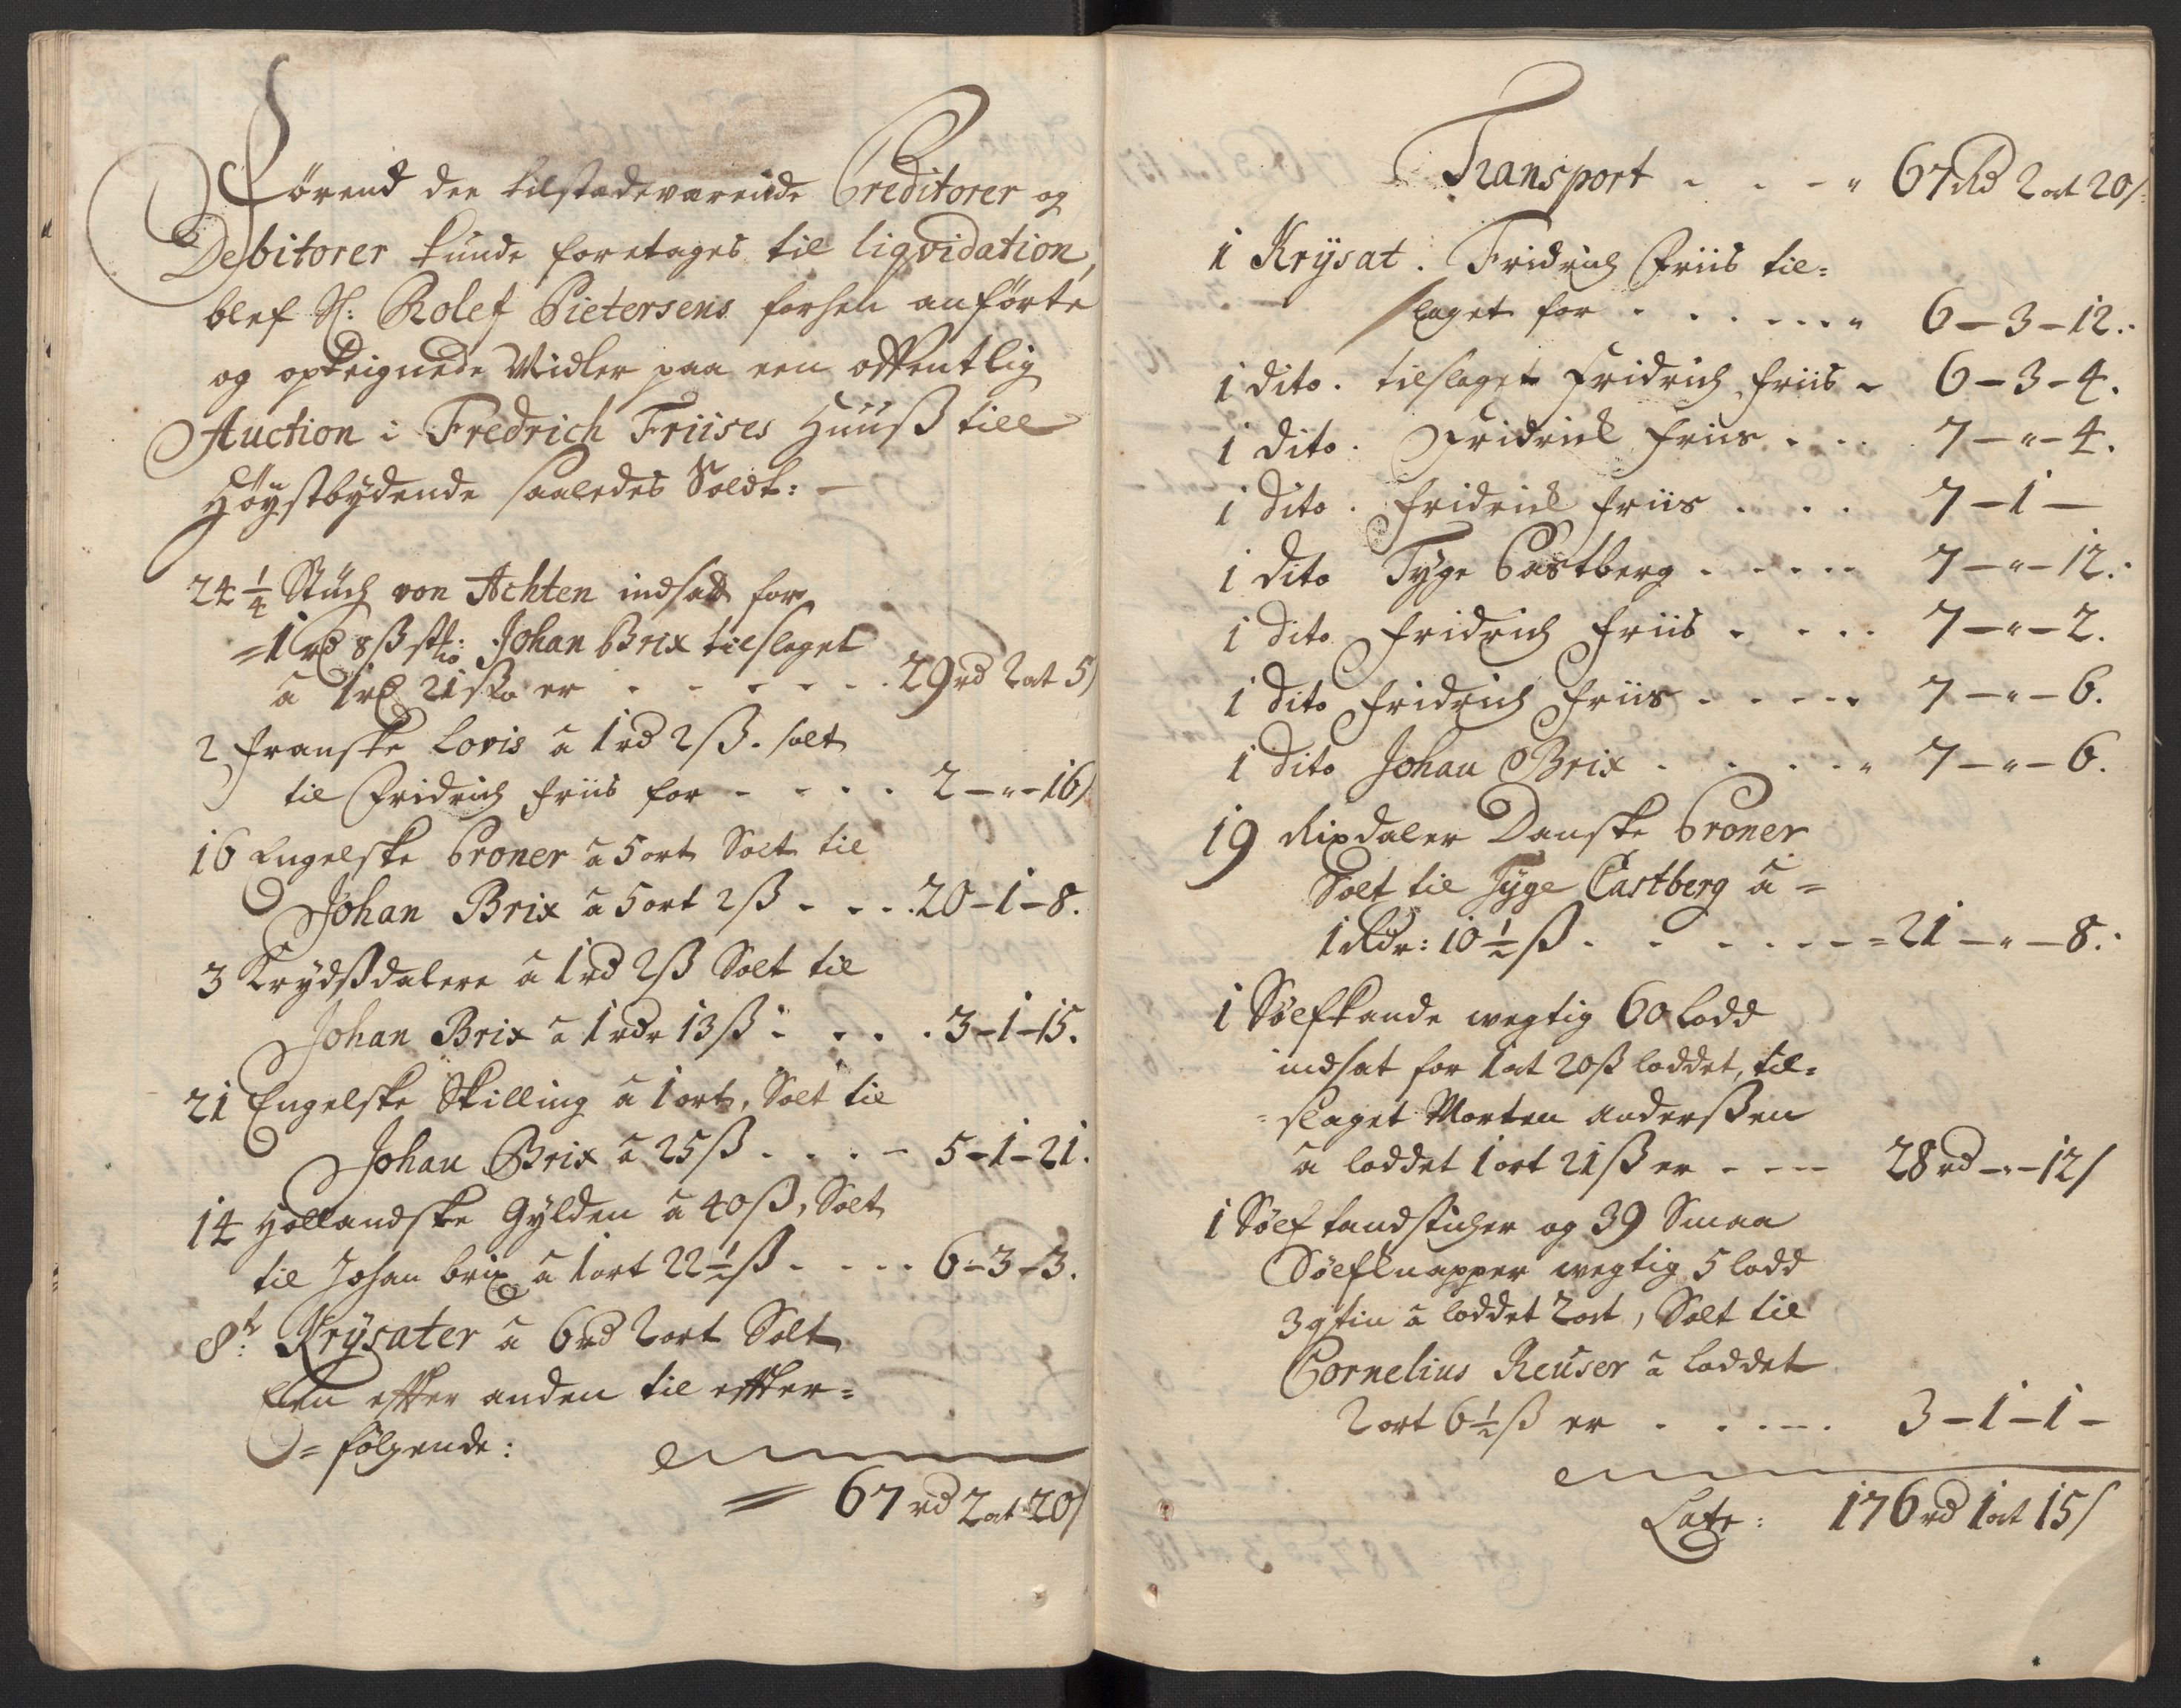 Førend dee tilstædeværende Creditorer og
Debitorer kunde foretages til liqvidation,
blef Sl: Rolef Pietersens forhen anførte
og opteignede Midler paa een offentlig
Auction i Fredrich Friises Huuß till
Høystbydende saaledes Soldt: —
24 1/4 Stück von Achten indsadt for
=1 rd 8 ß stk: Johan Brix tilslaget
a 1 rd 21 ß er . . . . . . 29 rd 2 ort 5/
2 Franske Lovis a 1 rd 2 ß. solt
til Fridrich Friis for - - . . 2 — " — 16/
16 Engelske Croner a 5 ort Solt til
Johan Brix a 5 ort 2 ß . . . . 20 – 1 – 8.
3 Krydßdalere a 1 rd 2 ß Solt til
Johan Brix a 1 rdr 13 ß . . . . 3 – 1 – 15.
21 Engelske Skilling a 1 ort, Solt til
Johan Brix a 25 ß . . . – 5 – 1 – 21.
14 Hollandske Gylden a 40 ß, Solt
til Johan brix a 1 ort 22 1/2 ß . . . . 6 – 3 – 3.
8t: Krysater a 6 rd 2 ort Solt
Een effter anden til effter=
= følgende:
= 67 rd 2 ort 20/
Transport . . . " 67 Rd 2 ort 20/
1 Krysat. Fridrich Friis til=
slaget for . . . . . . " 6 – 3 – 12.
1 dito. tilslaget Fridrich Friis – 6 – 3 – 4.
1 dito. Fridrich Friis . . . 7 — " — 4.
1 dito. Fridrich Friis . . . 7 – 1 —
1 dito Tyge Castberg . . . . . 7 — " — 12.
1 dito Fridrich Friis . . . . 7 — " — 2.
1 dito Fridrich Friis . . . . . 7 — " — 6.
1 dito Johan Brix . . . . " 7 — " — 6.
19 Rixdaler Danske Croner
Solt til Tyge Castberg a =
1 Rdr: 10 1/2 ß . . . . . . = 21 — " — 8.
1 Sølfkande wegtig 60 Lodd
indsat for 1 ort 20 ß loddet, til=
=slaget Morten Anderßen
a loddet 1 ort 21 ß er . . . . 28 rd — " — 12/
1 Sølf tandsticher og 39 Smaa
Sølfknapper wegtig 5 lodd
3 qtin a loddet 2 ort, Solt til
Cornelius Reuser a loddet
2 ort 6 1/2 ß er . . . . . 3 – 1 – 1 –
Late: 176 rd 1 ort 15/